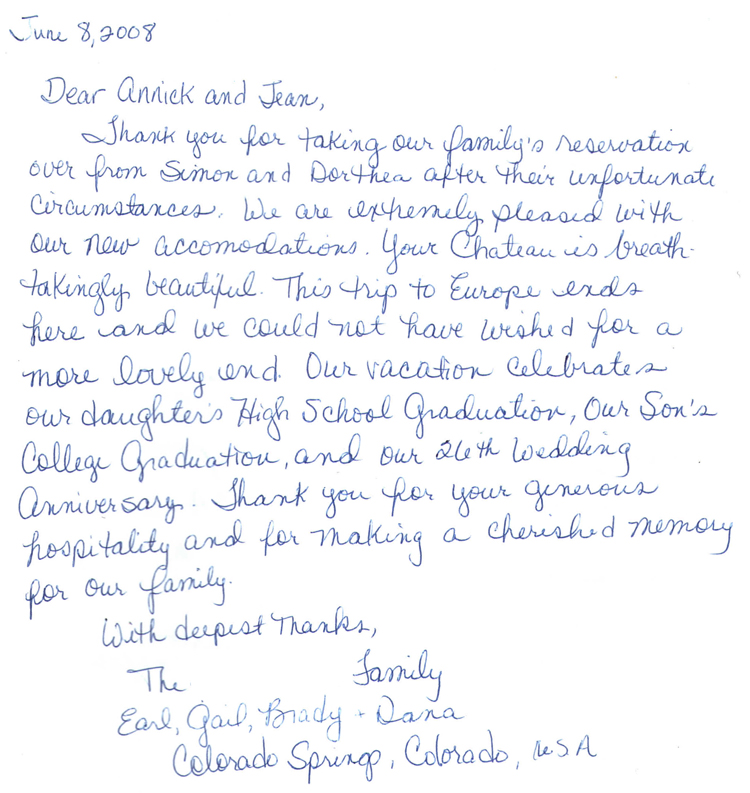 June 8, 2008
Dear Annick and Jean,
Thank you for taking our family's reservation
over from Simon and Dorthea after their unfortunate
circumstances. We are extremely pleased with
our new accomodations. Your Chateau is breath-
takingly beautiful. This trip to Europe ends
here and we could not have wished for a
more lovely end. Our vacation celebrates
our daughter's High School Graduation, Our Son's
College Graduation, and our 26th Wedding
Anniversary. Thank you for your generous
hospitality and for making a cherished memory
for our family.
With deepest Thanks,
The Family
Earl, Gail, Brady + Dana
Colorado Springs, Colorado, USA